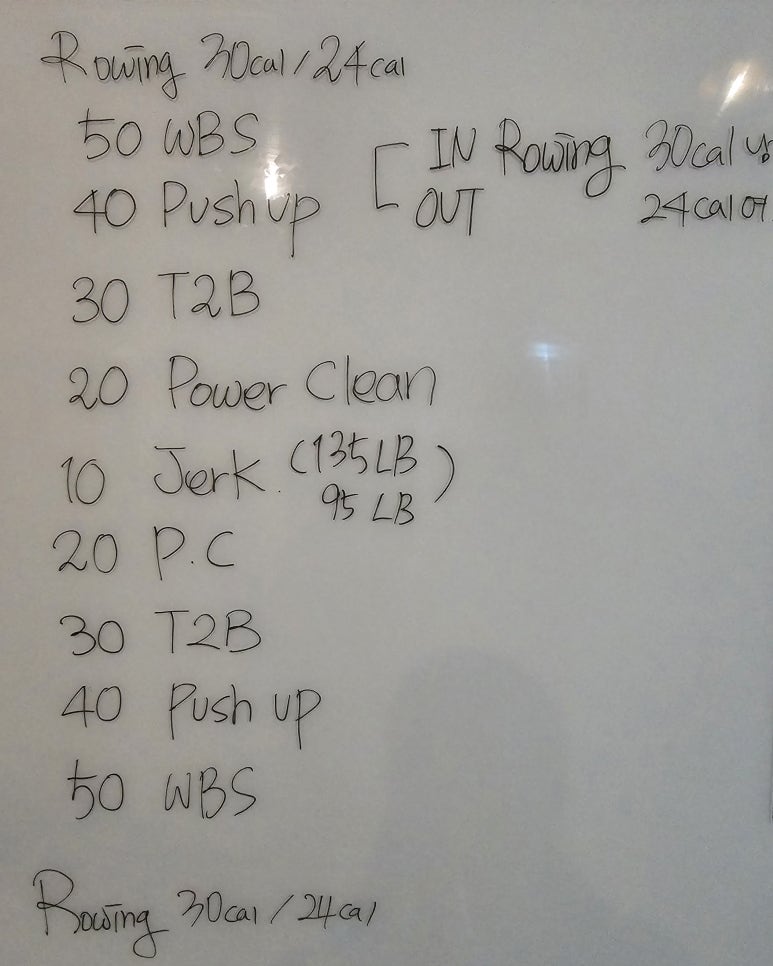 Rowing 30cal/24cal
50 WBS
40 Push up
[ IN Rowing 30cal
OUT 24cal
30 T2B
20 Power Clean
10 Jerk. (135LB
95 LB)
20 P.C
30 T2B
40 Push up
50 WBS
Rowing 30cal/24cal